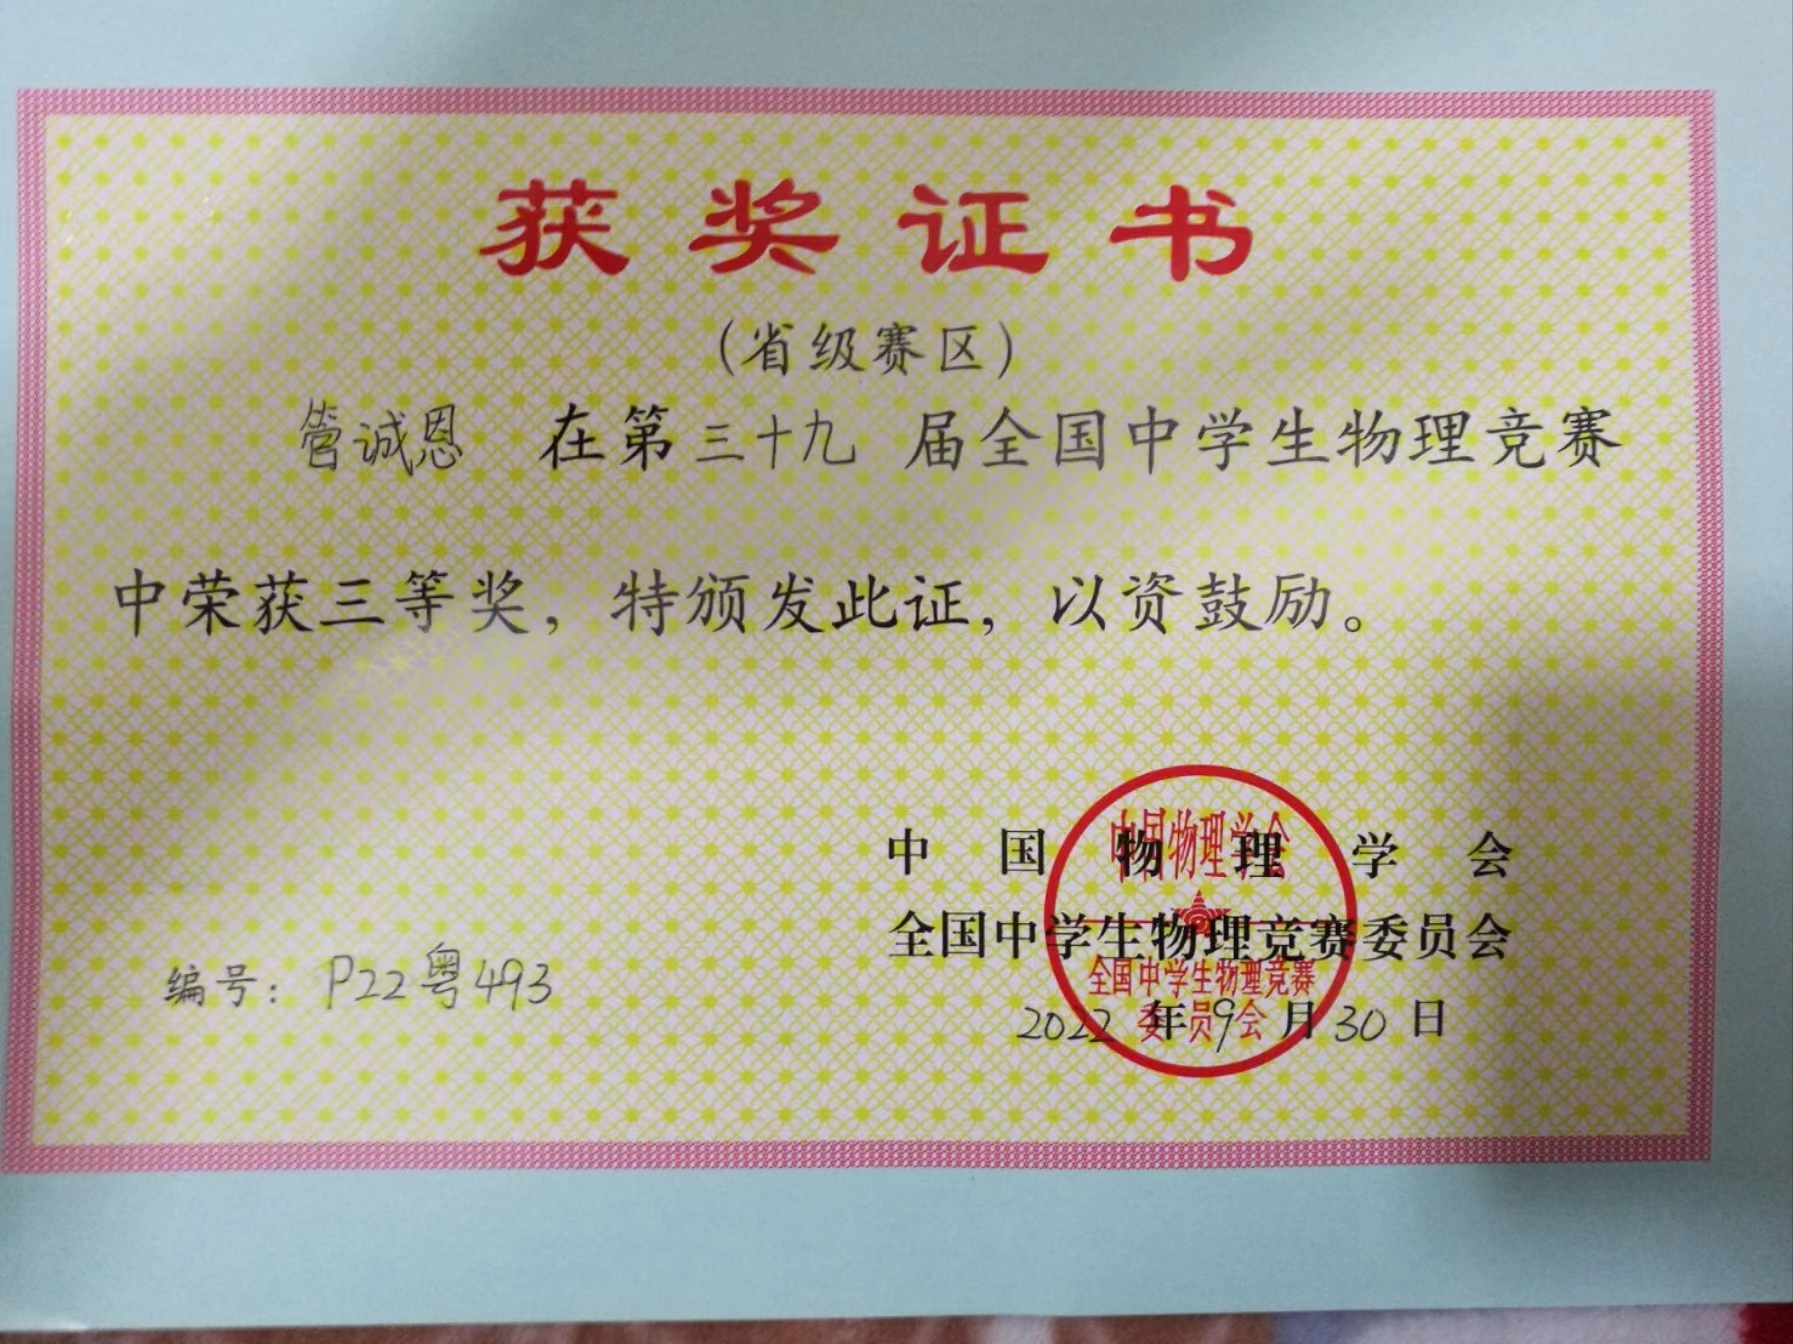 获奖证书
(省级赛区)
管诚恩 在第三十九 届全国中学生物理竞赛
中荣获三等奖，特颁发此证，以资鼓励。
中国物理学会
全国中学生物理竞赛委员会
2022年9月30日
中国物理学会
全国中学生物理竞赛
委员会
编号：P22粤493